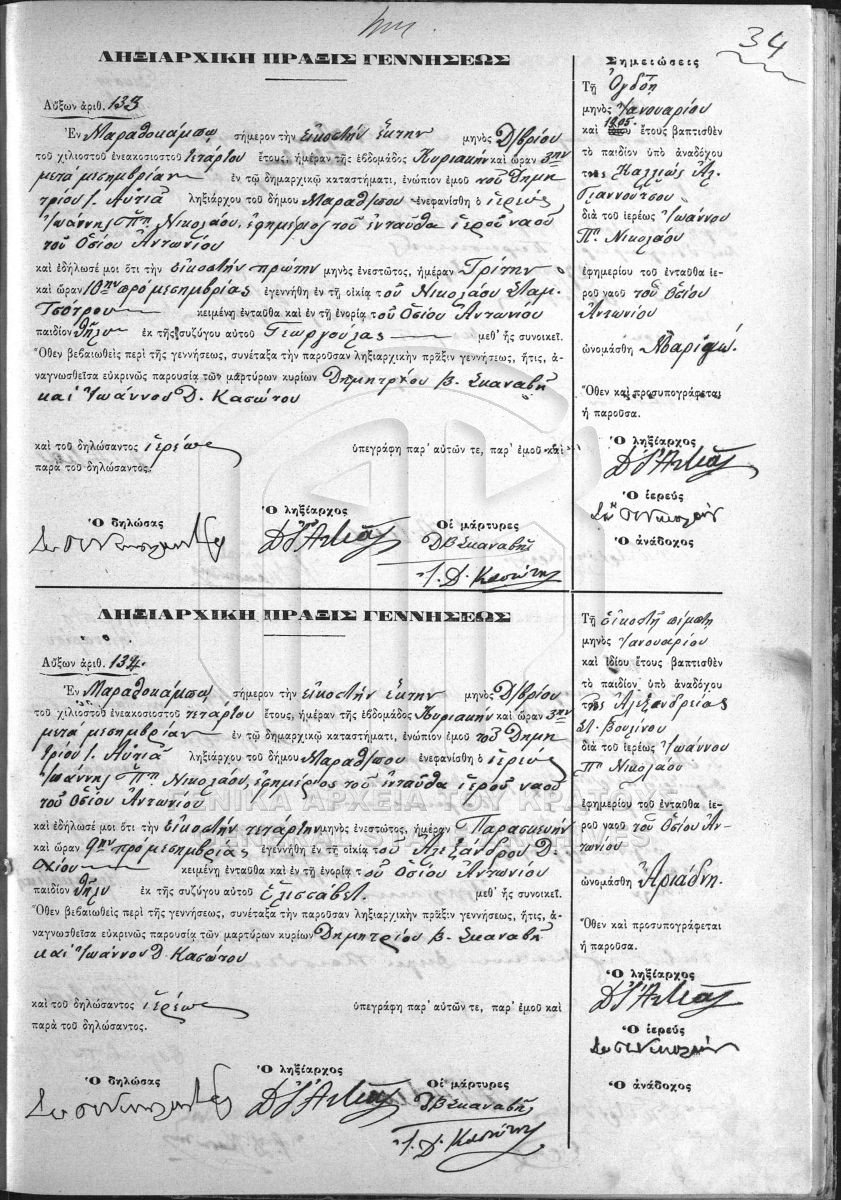 34
ΛΗΞΙΑΡΧΙΚΗ ΠΡΑΞΙΣ ΓΕΝΝΗΣΕΩΣ
Αὔξων ἀριθ. 133
Ἐν Μαραθοκάμπῳ σήμερον τὴν εἰκοστὴν ἕκτην μηνὸς Δ/βρίου
τοῦ χιλιοστοῦ ἐνεακοσιοστοῦ τετάρτου ἔτους, ἡμέραν τῆς ἑβδομάδος Κυριακὴν καὶ ὥραν 3ην
μετὰ μεσημβρίαν ἐν τῷ δημαρχικῷ καταστήματι, ἐνώπιον ἐμοῦ τοῦ Δημη
τρίου Ι. Αὐτιᾶ ληξιάρχου τοῦ δήμου Μαραθ/μπου ἐνεφανίσθη ὁ ἱερεὺς
Ἰωάννης Ππ Νικολάου, ἐφημέριος τοῦ ἐνταῦθα ἱεροῦ ναοῦ
τοῦ Ὁσίου Ἀντωνίου
καὶ ἐδήλωσέ μοι ὅτι τὴν εἰκοστὴν πρώτην μηνὸς ἐνεστῶτος, ἡμέραν Τρίτην
καὶ ὥραν 10ην πρὸ μεσημβρίας ἐγεννήθη ἐν τῇ οἰκίᾳ τοῦ Νικολάου Σταμ
τσότρου κειμένῃ ἐνταῦθα καὶ ἐν τῇ ἐνορίᾳ τοῦ Ὁσίου Ἀντωνίου
παιδίον θῆλυ ἐκ τῆς συζύγου αὐτοῦ Γεωργούλας μεθ' ἧς συνοικεῖ.
Ὅθεν βεβαιωθεὶς περὶ τῆς γεννήσεως, συνέταξα τὴν παροῦσαν ληξιαρχικὴν πρᾶξιν γεννήσεως, ἥτις, ἀ-
ναγνωσθεῖσα εὐκρινῶς παρουσίᾳ τῶν μαρτύρων κυρίων Δημητρίου Β. Σκαναβῆ
καὶ Ἰωάννου Δ. Κασώτου
καὶ τοῦ δηλώσαντος ἱερέως ὑπεγράφη παρ' αὐτῶν τε, παρ' ἐμοῦ καὶ
παρὰ τοῦ δηλώσαντος.
Ὁ δηλώσας Ὁ ληξίαρχος Οἱ μάρτυρες
Δ Ι Αὐτιᾶς Δ Β Σκαναβῆς
Ι. Δ. Κασώτης
Σημειώσεις
Τῇ Ὀγδόῃ
μηνὸς Ἰανουαρίου
1905
καὶ ἔτους βαπτισθὲν
τὸ παιδίον ὑπὸ ἀναδόχου
της Καλλιῶς Ἀλ.
Γιαννούτσου
διὰ τοῦ ἱερέως Ἰωάννου
Ππ Νικολάου
ἐφημερίου τοῦ ἐνταῦθα ἱε-
ροῦ ναοῦ τοῦ Ὁσίου
Ἀντωνίου
ὠνομάσθη Μαριγώ.
Ὅθεν καὶ προσυπογράφεται
ἡ παροῦσα.
Ὁ ληξίαρχος
Δ Ι Αὐτιᾶς
Ὁ ἱερεύς
Ὁ ἀνάδοχος
ΛΗΞΙΑΡΧΙΚΗ ΠΡΑΞΙΣ ΓΕΝΝΗΣΕΩΣ
Αὔξων ἀριθ. 134.
Ἐν Μαραθοκάμπῳ σήμερον τὴν εἰκοστὴν ἕκτην μηνὸς Δ/βρίου
τοῦ χιλιοστοῦ ἐνεακοσιοστοῦ τετάρτου ἔτους, ἡμέραν τῆς ἑβδομάδος Κυριακὴν καὶ ὥραν 3ην
μετὰ μεσημβρίαν ἐν τῷ δημαρχικῷ καταστήματι, ἐνώπιον ἐμοῦ τοῦ Δημη
τρίου Ι. Αὐτιᾶ ληξιάρχου τοῦ δήμου Μαραθ/μπου ἐνεφανίσθη ὁ ἱερεὺς
Ἰωάννης Ππ Νικολάου, ἐφημέριος τοῦ ἐνταῦθα ἱεροῦ ναοῦ
τοῦ Ὁσίου Ἀντωνίου
καὶ ἐδήλωσέ μοι ὅτι τὴν εἰκοστὴν τετάρτην μηνὸς ἐνεστῶτος, ἡμέραν Παρασκευὴν
καὶ ὥραν 9ην πρὸ μεσημβρίας ἐγεννήθη ἐν τῇ οἰκίᾳ τοῦ Ἀλεξάνδρου Δ.
Οχίου κειμένῃ ἐνταῦθα καὶ ἐν τῇ ἐνορίᾳ τοῦ Ὁσίου Ἀντωνίου
παιδίον θῆλυ ἐκ τῆς συζύγου αὐτοῦ Ἐλισσάβετ. μεθ' ἧς συνοικεῖ.
Ὅθεν βεβαιωθεὶς περὶ τῆς γεννήσεως, συνέταξα τὴν παροῦσαν ληξιαρχικὴν πρᾶξιν γεννήσεως, ἥτις, ἀ-
ναγνωσθεῖσα εὐκρινῶς παρουσίᾳ τῶν μαρτύρων κυρίων Δημητρίου Β. Σκαναβῆ
καὶ Ἰωάννου Δ. Κασώτου
καὶ τοῦ δηλώσαντος ἱερέως ὑπεγράφη παρ' αὐτῶν τε, παρ' ἐμοῦ καὶ
παρὰ τοῦ δηλώσαντος.
Ὁ δηλώσας Ὁ ληξίαρχος Οἱ μάρτυρες
Δ Ι Αὐτιᾶς Δ Β Σκαναβῆς
Ι. Δ. Κασώτης
Τῇ εἰκοστῇ πέμπτῃ
μηνὸς Ἰανουαρίου
καὶ ἰδίου ἔτους βαπτισθὲν
τὸ παιδίον ὑπὸ ἀναδόχου
της Ἀλεξανδρείας
Βουλίνου
διὰ τοῦ ἱερέως Ἰωάννου
Ππ Νικολάου
ἐφημερίου τοῦ ἐνταῦθα ἱε-
ροῦ ναοῦ τοῦ Ὁσίου Ἀν-
τωνίου
ὠνομάσθη Ἀριάδνη.
Ὅθεν καὶ προσυπογράφεται
ἡ παροῦσα.
Ὁ ληξίαρχος
Δ Ι Αὐτιᾶς
Ὁ ἱερεύς
Ὁ ἀνάδοχος
ΓΕΝΙΚΑ ΑΡΧΕΙΑ ΤΟΥ ΚΡΑΤΟΥΣ